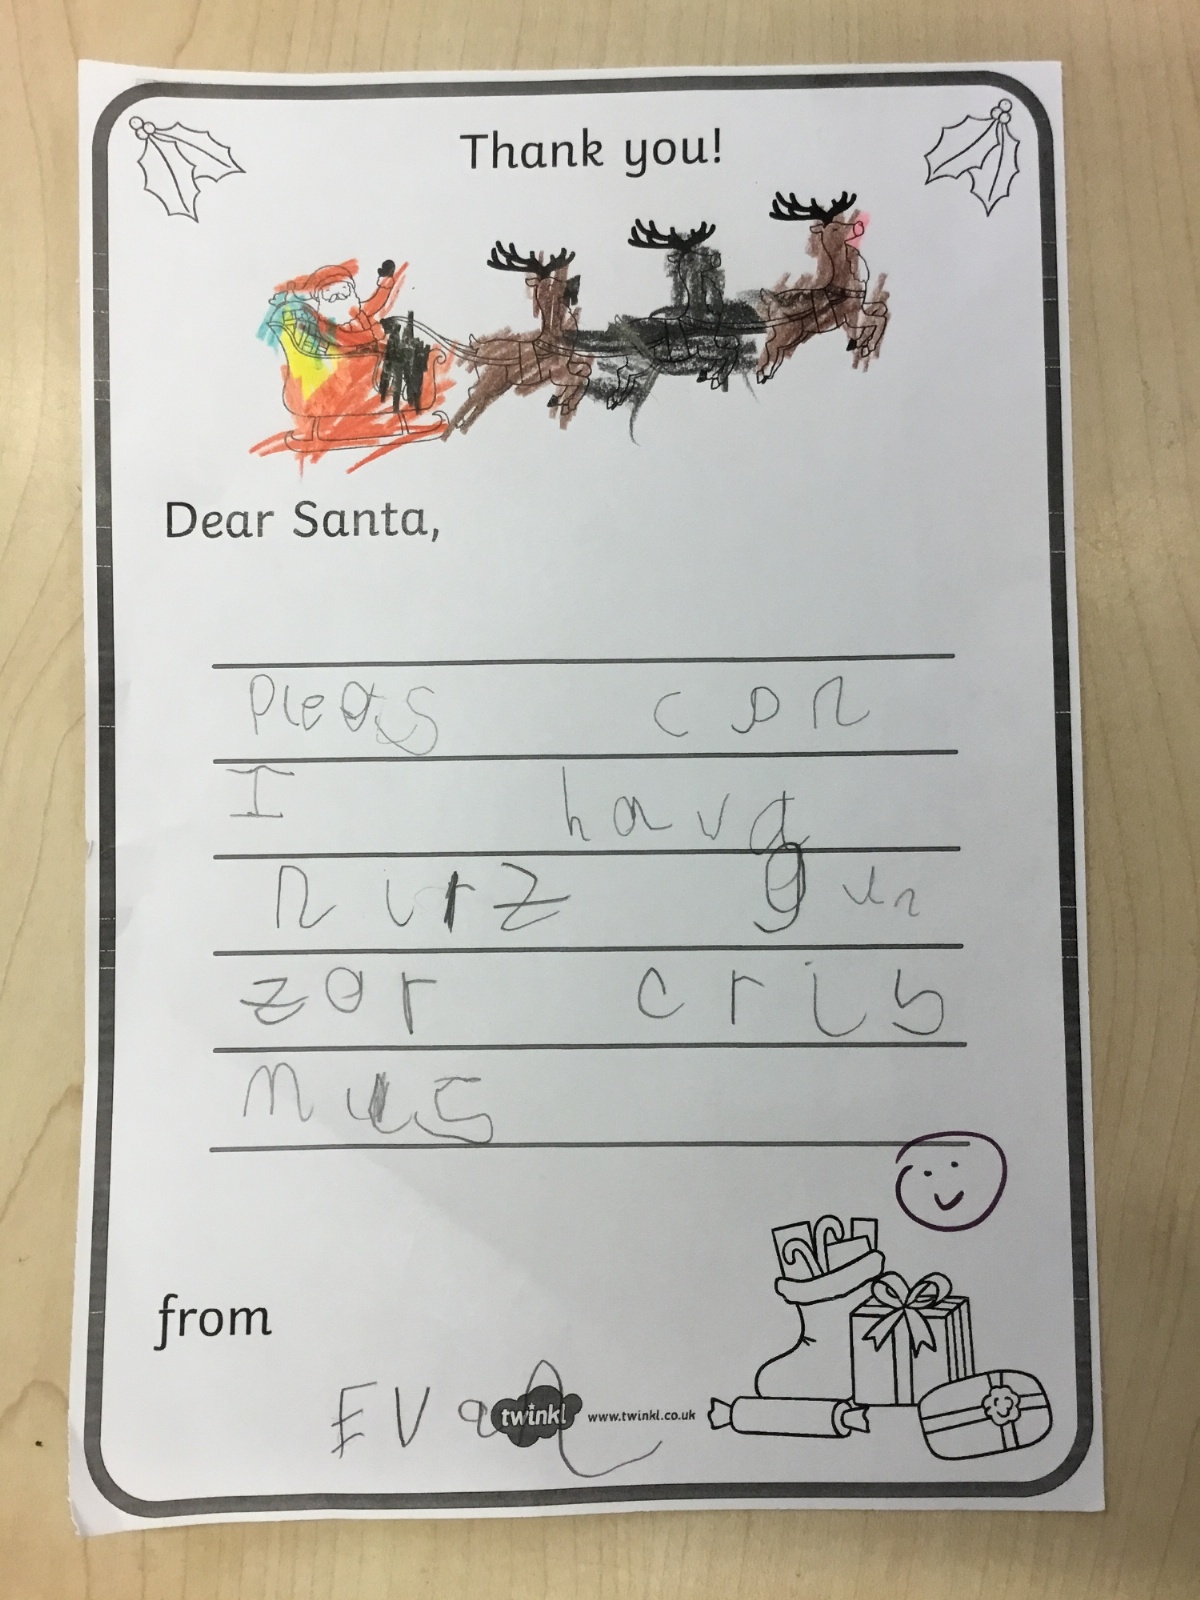 Thank you!
Dear Santa,
Pleas can
I hava
nirz gun
zor cris
mus
from
Evan
twinkl www.twinkl.co.uk